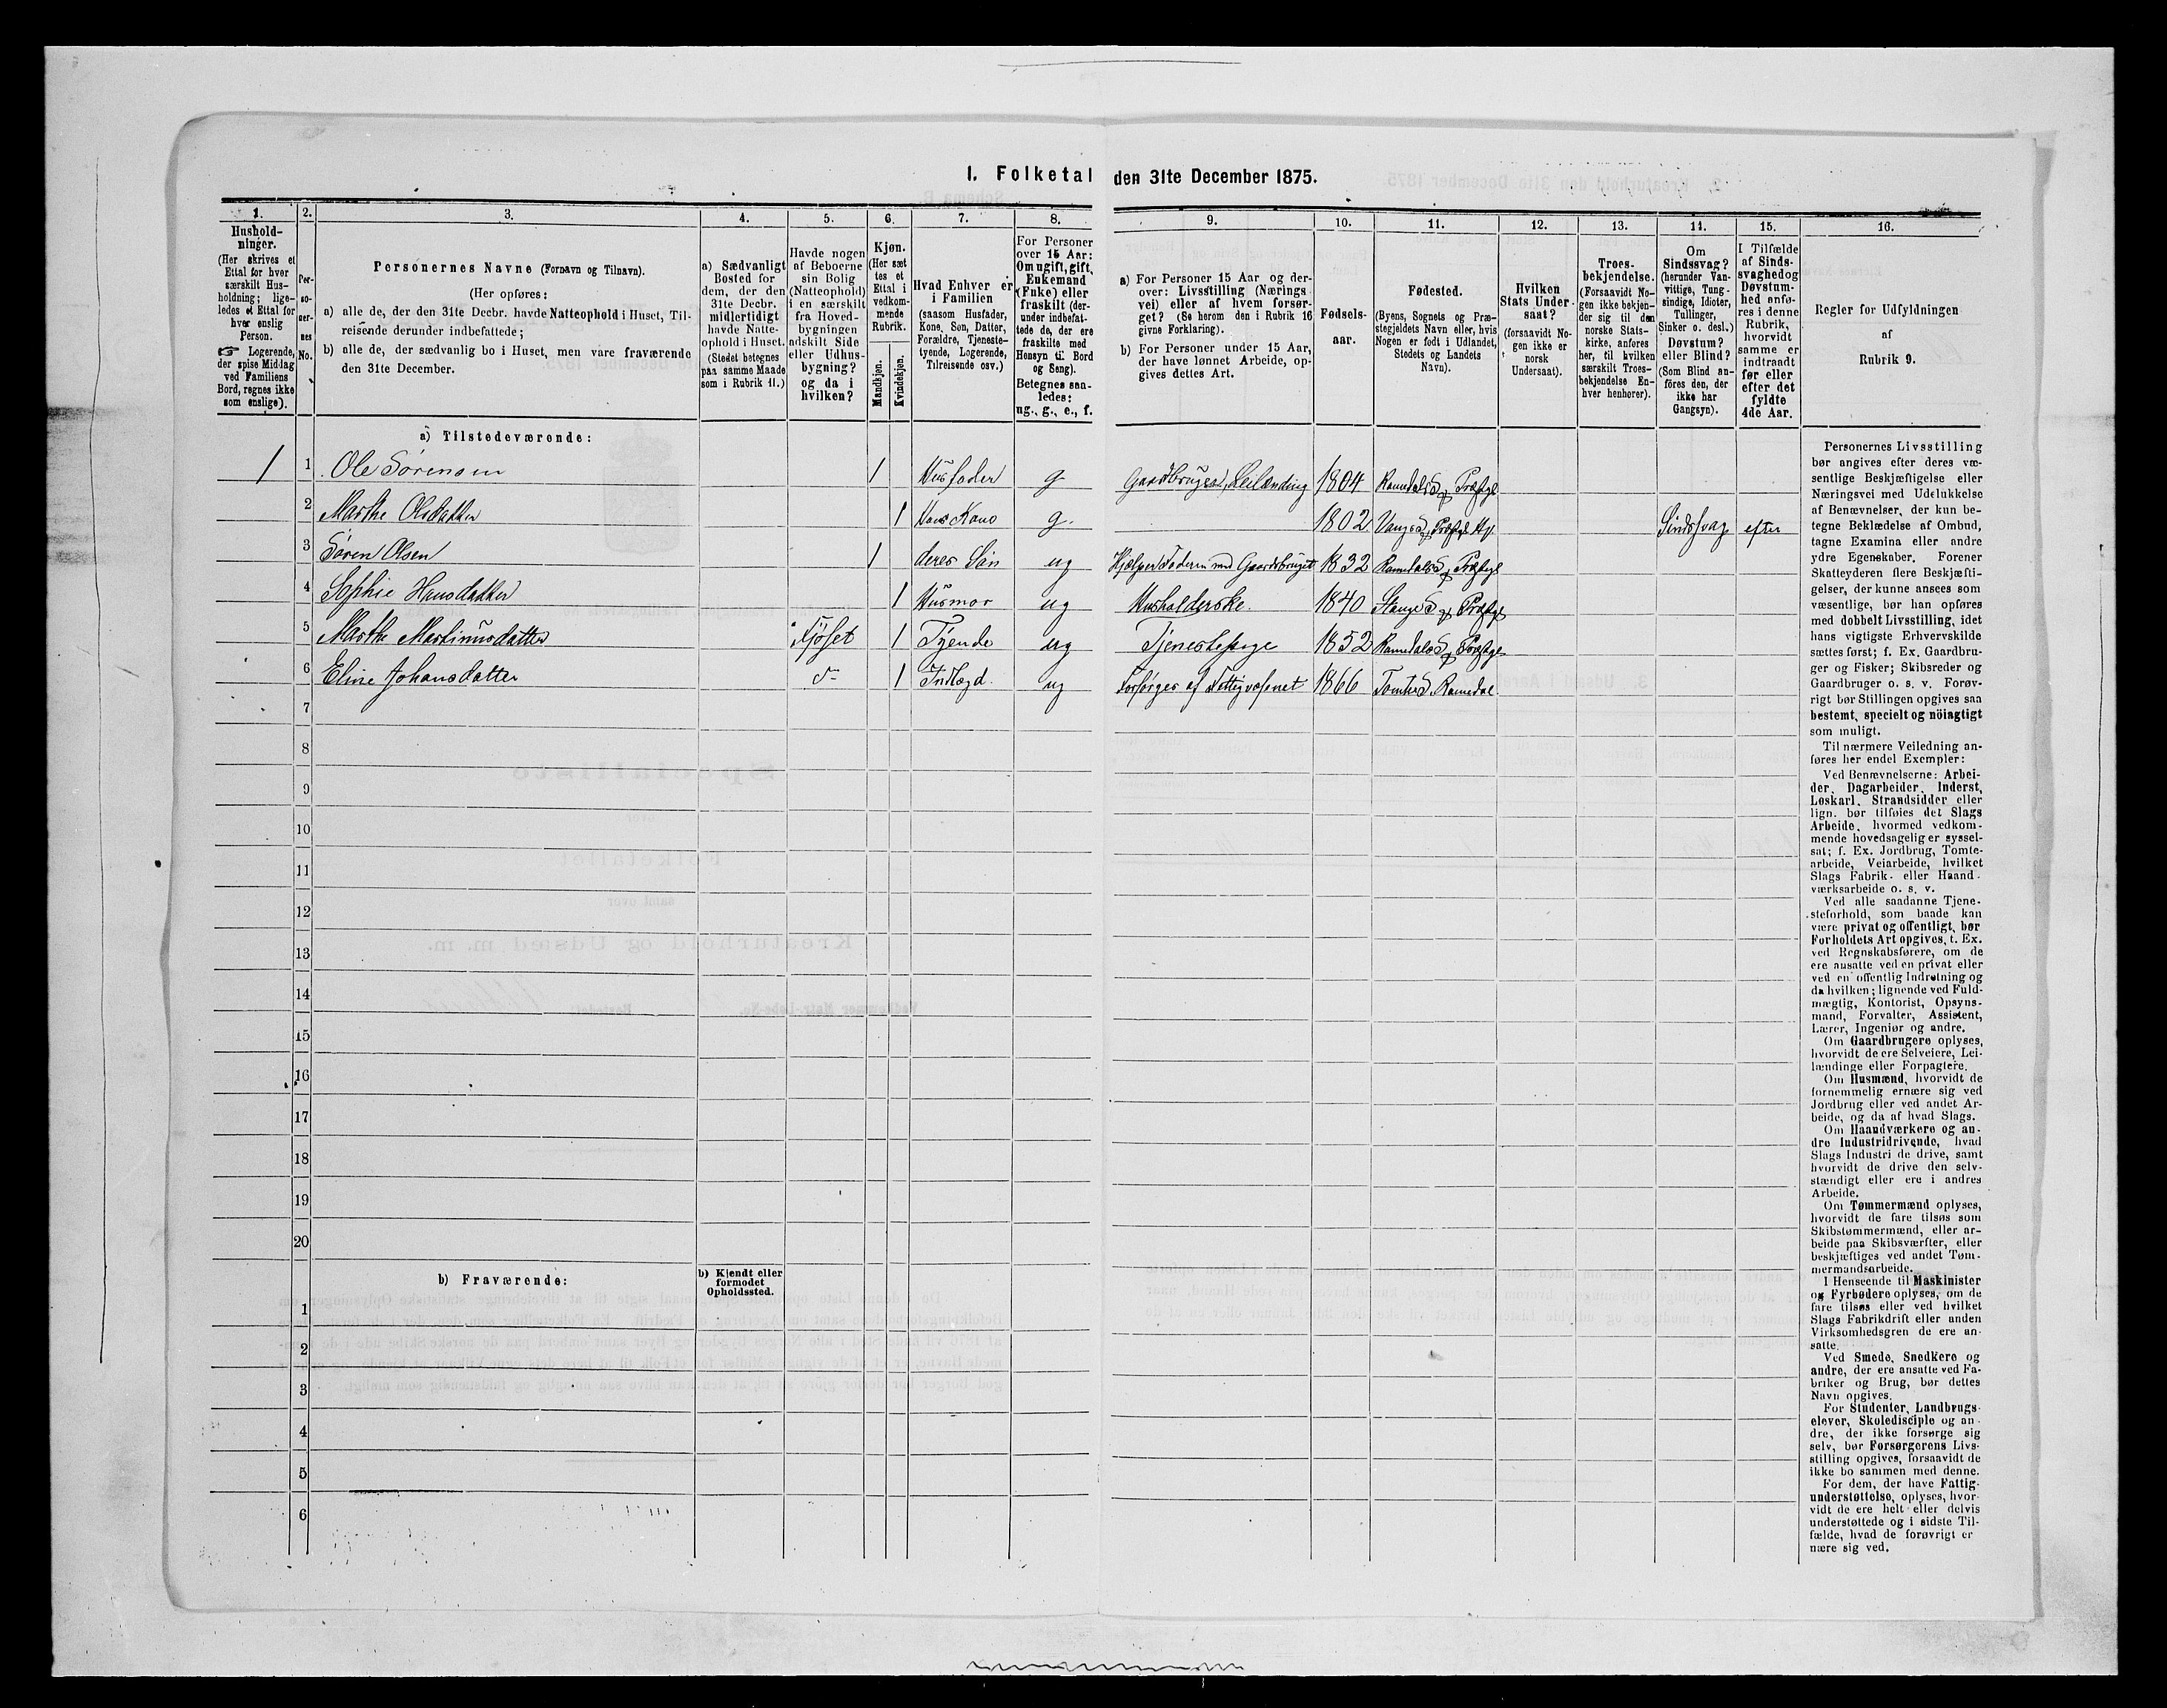 1. Folketal den 31te December 1875.
1.
2.
3.
4.
5.
6.
7.
8.
9.
10.
11.
12.
13.
14.
15.
16.
Hushold-
ninger.
(Her skrives et
Ettal for hver
særskilt Hus-
holdning; lige-
ledes et Ettal for
hver enslig
Person.
☞ Logerende,
der spise Middag
ved Familiens
Bord, regnes ikke
som enslige).
Per-
so-
ner-
nes
No.
Personernes Navne (Fornavn og Tilnavn).
(Her opføres:
a) alle de, der den 31te Decbr. havde Natteophold i Huset, Til-
reisende derunder indbefattede;
b) alle de, der sædvanlig bo i Huset, men vare fraværende
den 31te December.
a) Sædvanligt
Bosted for
dem, der den
31te Decbr.
midlertidigt
havde Natte-
ophold i Huset.
(Stedet betegnes
paa samme Maade
som i Rubrik 11.)
Havde nogen
af Beboerne
sin Bolig
(Natteophold)
i en særskilt
fra Hoved-
bygningen
adskilt Side
eller Udhus-
bygning?
og da i
hvilken?
Kjøn.
(Her sæt
tes et
Ettal i
vedkom-
mende
Rubrik.
Mandkjøn.
Kvindekjøn.
Hvad Enhver er
i Familien
(saasom Husfader,
Kone, Søn, Datter,
Forældre, Tjeneste-
tyende, Logerende,
Tilreisende osv.)
For Personer
over 15 Aar:
Om ugift, gift,
Enkemand
(Enke) eller
fraskilt (der-
under indbefat-
tede de, der ere
fraskilte med
Hensyn til Bord
og Seng).
Betegnes saa-
ledes:
ug., g., e., f.
a) For Personer 15 Aar og der-
over: Livsstilling (Nærings
vei) eller af hvem forsør-
get? (Se herom den i Rubrik 16
givne Forklaring).
b) For Personer under 15 Aar,
der have lønnet Arbeide, op-
gives dettes Art.
Fødsels-
aar.
Fødested.
(Byens, Sognets og Præ-
stegjeldets Navn eller, hvis
Nogen er født i Udlandet,
Stedets og Landets
Navn).
Hvilken
Stats Under-
saat?
(forsaavidt No-
gen ikke er
norsk
Undersaat).
Troes-
bekjendelse.
(Forsaavidt No-
gen ikke bekjen-
der sig til den
norske Stats-
kirke, anføres
her, til hvilken
særskilt Troes-
bekjendelse En-
hver henhører).
Om
Sindssvag?
(herunder Van-
vittige, Tung-
sindige, Idioter,
Tullinger,
Sinker o. desl.)
Døvstum?
eller Blind?
(Som Blind an-
føres den, der
ikke har
Gangsyn).
I Tilfælde
af Sinds-
svaghed og
Døvstum-
hed anfø-
res i denne
Rubrik,
hvorvidt
samme er
indtraadt
før eller
efter det
fyldte
4de Aar.
Regler for Udfyldningen
af
Rubrik 9.
a) Tilstedeværende:
1 1 Ole Sørensen 1 Husfader g Gaardbruger, Leilænding 1804 Romedals S. og Præstgl
2 Marthe Olsdatter 1 Hans Kone g. 1802 Vangs S. og Præstgl Sindssvag efter
3 Søren Olsen 1 deres Søn ug Hjælper Faderen med Gaardsbruget 1832 Romedals S. og Præstgl
4 Sophie Hansdatter 1 Husmor ug Husholderske. 1840 Stange S. og Præstgl
5 Marthe Martinusdatter i Fjøset 1 Tyende ug Tjenestepige 1852 Romedals S. og Præstgl
6 Eline Johansdatter 1 Indlagd. ug Forsørges af Fattigvæsenet 1866 Tomter S. Romedal
7
8
9
10
11
12
13
14
15
16
17
18
19
20
b) Fraværende:
b) Kjendt eller
formodet
Opholdssted.
1
2
3
4
5
6
Personernes Livsstilling
bør angives efter deres væ-
sentlige Beskjæftigelse eller
Næringsvei med Udelukkelse
af Benævnelser, der kun be-
tegne Beklædelse af Ombud,
tagne Examina eller andre
ydre Egenskaber. Forener
Skatteyderen flere Beskjæfti-
gelser, der kunne ansees som
væsentlige, bør han opføres
med dobbelt Livsstilling, idet
hans vigtigste Erhvervskilde
sættes først; f. Ex. Gaardbru-
ger og Fisker; Skibsreder og
Gaardbruger o. s. v. Forøv-
rigt bør Stillingen opgives saa
bestemt, specielt og nöiagtigt
som muligt.
Til nærmere Veiledning an-
føres her endel Exempler:
Ved Benævnelserne: Arbei-
der, Dagarbeider, Inderst,
Løskarl, Strandsidder eller
lign. bør tilføies det Slags
Arbeide, hvormed vedkom-
mende hovedsagelig er syssel-
sat; f. Ex. Jordbrug, Tomte-
arbeide, Veiarbeide, hvilket
Slags Fabrik- eller Haand-
værksarbeide o. s. v.
Ved alle saadanne Tjene-
steforhold, som baade kan
være privat og offentligt, bør
Forholdets Art opgives, t. Ex.
ved Regnskabsførere, om de
ere ansatte ved en privat eller
ved en offentlig Indretning og
da hvilken; lignende ved Fuld-
mægtig, Kontorist, Opsyns-
mand, Forvalter, Assistent,
Lærer, Ingeniør og andre.
Om Gaardbrugere oplyses,
hvorvidt de ere Selveiere, Lei-
lændinge eller Forpagtere.
Om Husmænd, hvorvidt de
fornemmelig ernære sig ved
Jordbrug eller ved andet Ar-
beide, og da af hvad Slags.
Om Haandværkere og an-
dre Industridrivende, hvad
Slags Industri de drive, samt
hvorvidt de drive den selv-
stændigt eller ere i andres
Arbeide.
Om Tømmermænd oplyses,
hvorvidt de fare tilsøs som
Skibstømmermænd, eller ar-
beide paa Skibsværfter, eller
beskjæftiges ved andet Tøm-
mermandsarbeide.
I Henseende til Maskinister
og Fyrbødere oplyses, om de
fare tilsøs eller ved hvilket
Slags Fabrikdrift eller anden
Virksomhedsgren de ere an-
satte.
Ved Smede, Snedkere og
andre, der ere ansatte ved Fa-
briker og Brug, bør dettes
Navn opgives.
For Studenter, Landbrugs-
elever, Skoledisciple og an-
dre, der ikke forsørge sig
selv, bør Forsørgerens Livs-
stilling opgives, forsaavidt de
ikke bo sammen med denne.
For dem, der have Fattig-
understøttelse, oplyses, hvor-
vidt de ere helt eller delvis
understøttede og i sidste Til-
fælde, hvad de forøvrigt er
nære sig ved.